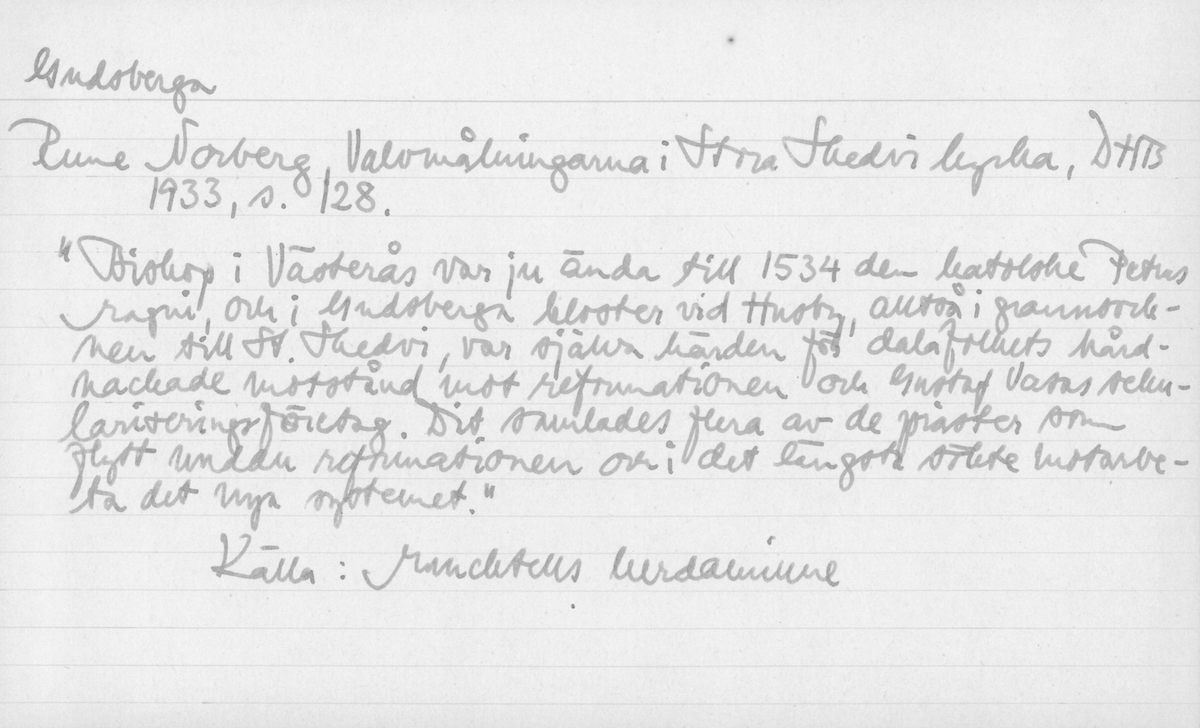 Gudsberga
Rune Norberg, Valvmålningarna i Stora Skedvi kyrka, DHB
1933, s. 128.
"Biskop i Västerås var ju ända till 1534 den katolske Petrus
Magni, och i Gudsberga kloster vid Husby, alltså i grannsock-
nen till St. Skedvi, var själva härden för dalafolkets hård-
nackade motstånd mot reformationen och Gustaf Vasas seku-
lariseringsföretag. Dit samlades flera av de präster som
flytt undan reformationen och i det längsta sökte motarbe-
ta det nya systemet."
Källa: Muncktells herdaminne